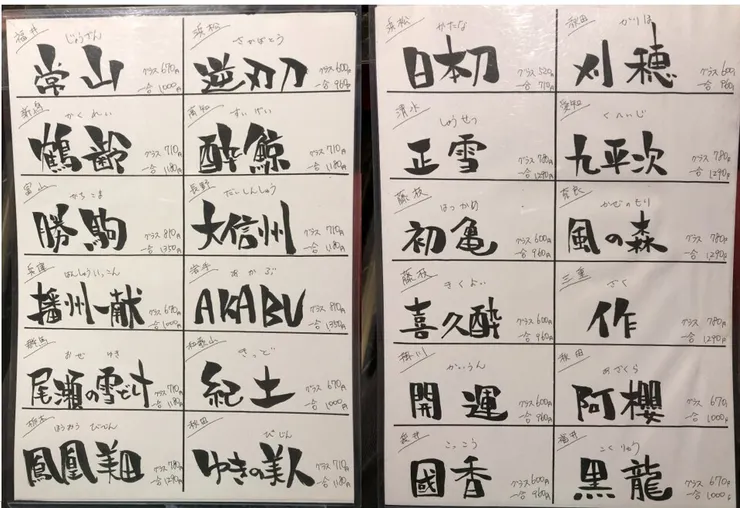 福井
じょうざん
常山
グラス 670円
一合 1000円
浜松
さかばとう
逆刃刀
グラス 600円
一合 960円
新潟
かくれい
鶴齢
グラス 710円
一合 1180円
高知
すいげい
酔鯨
グラス 710円
一合 1180円
富山
かちこま
勝駒
グラス 810円
一合 1350円
長野
だいしんしゅう
大信州
グラス 710円
一合 1180円
兵庫
ばんしゅういっこん
播州一献
グラス 670円
一合 1000円
岩手
あかぶ
AKABU
グラス 810円
一合 1350円
群馬
おぜ ゆき
尾瀬の雪どけ
グラス 710円
一合 1180円
和歌山
きっど
紀土
グラス 670円
一合 1000円
栃木
ほうおう びでん
鳳凰美田
グラス 780円
一合 1290円
秋田
びじん
ゆきの美人
グラス 710円
一合 1180円
浜松
かたな
日本刀
グラス 520円
一合 710円
秋田
かりほ
刈穂
グラス 600円
一合 960円
清水
しょうせつ
正雪
グラス 780円
一合 1290円
愛知
くへいじ
九平次
グラス 780円
一合 1290円
藤枝
はつかめ
初亀
グラス 600円
一合 960円
奈良
かぜのもり
風の森
グラス 780円
一合 1290円
藤枝
きくよい
喜久酔
グラス 600円
一合 960円
三重
ざく
作
グラス 780円
一合 1290円
掛川
かいうん
開運
グラス 600円
一合 960円
秋田
あざくら
阿櫻
グラス 670円
一合 1000円
袋井
こっこう
國香
グラス 600円
一合 960円
福井
こくりゅう
黒龍
グラス 670円
一合 1000円